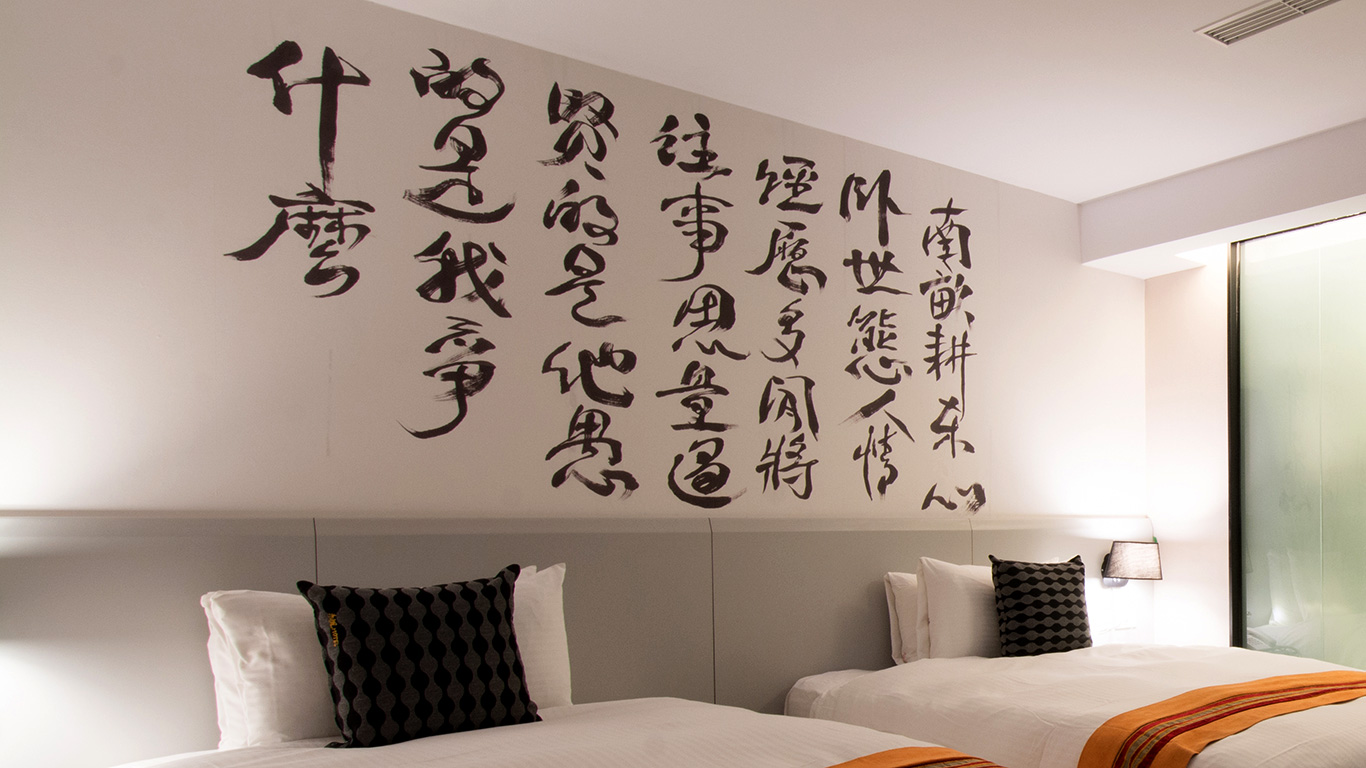 南畝耕東山
臥世態人情
經歷多閒將
往事思量過
賢的是他愚
的是我爭
什麼